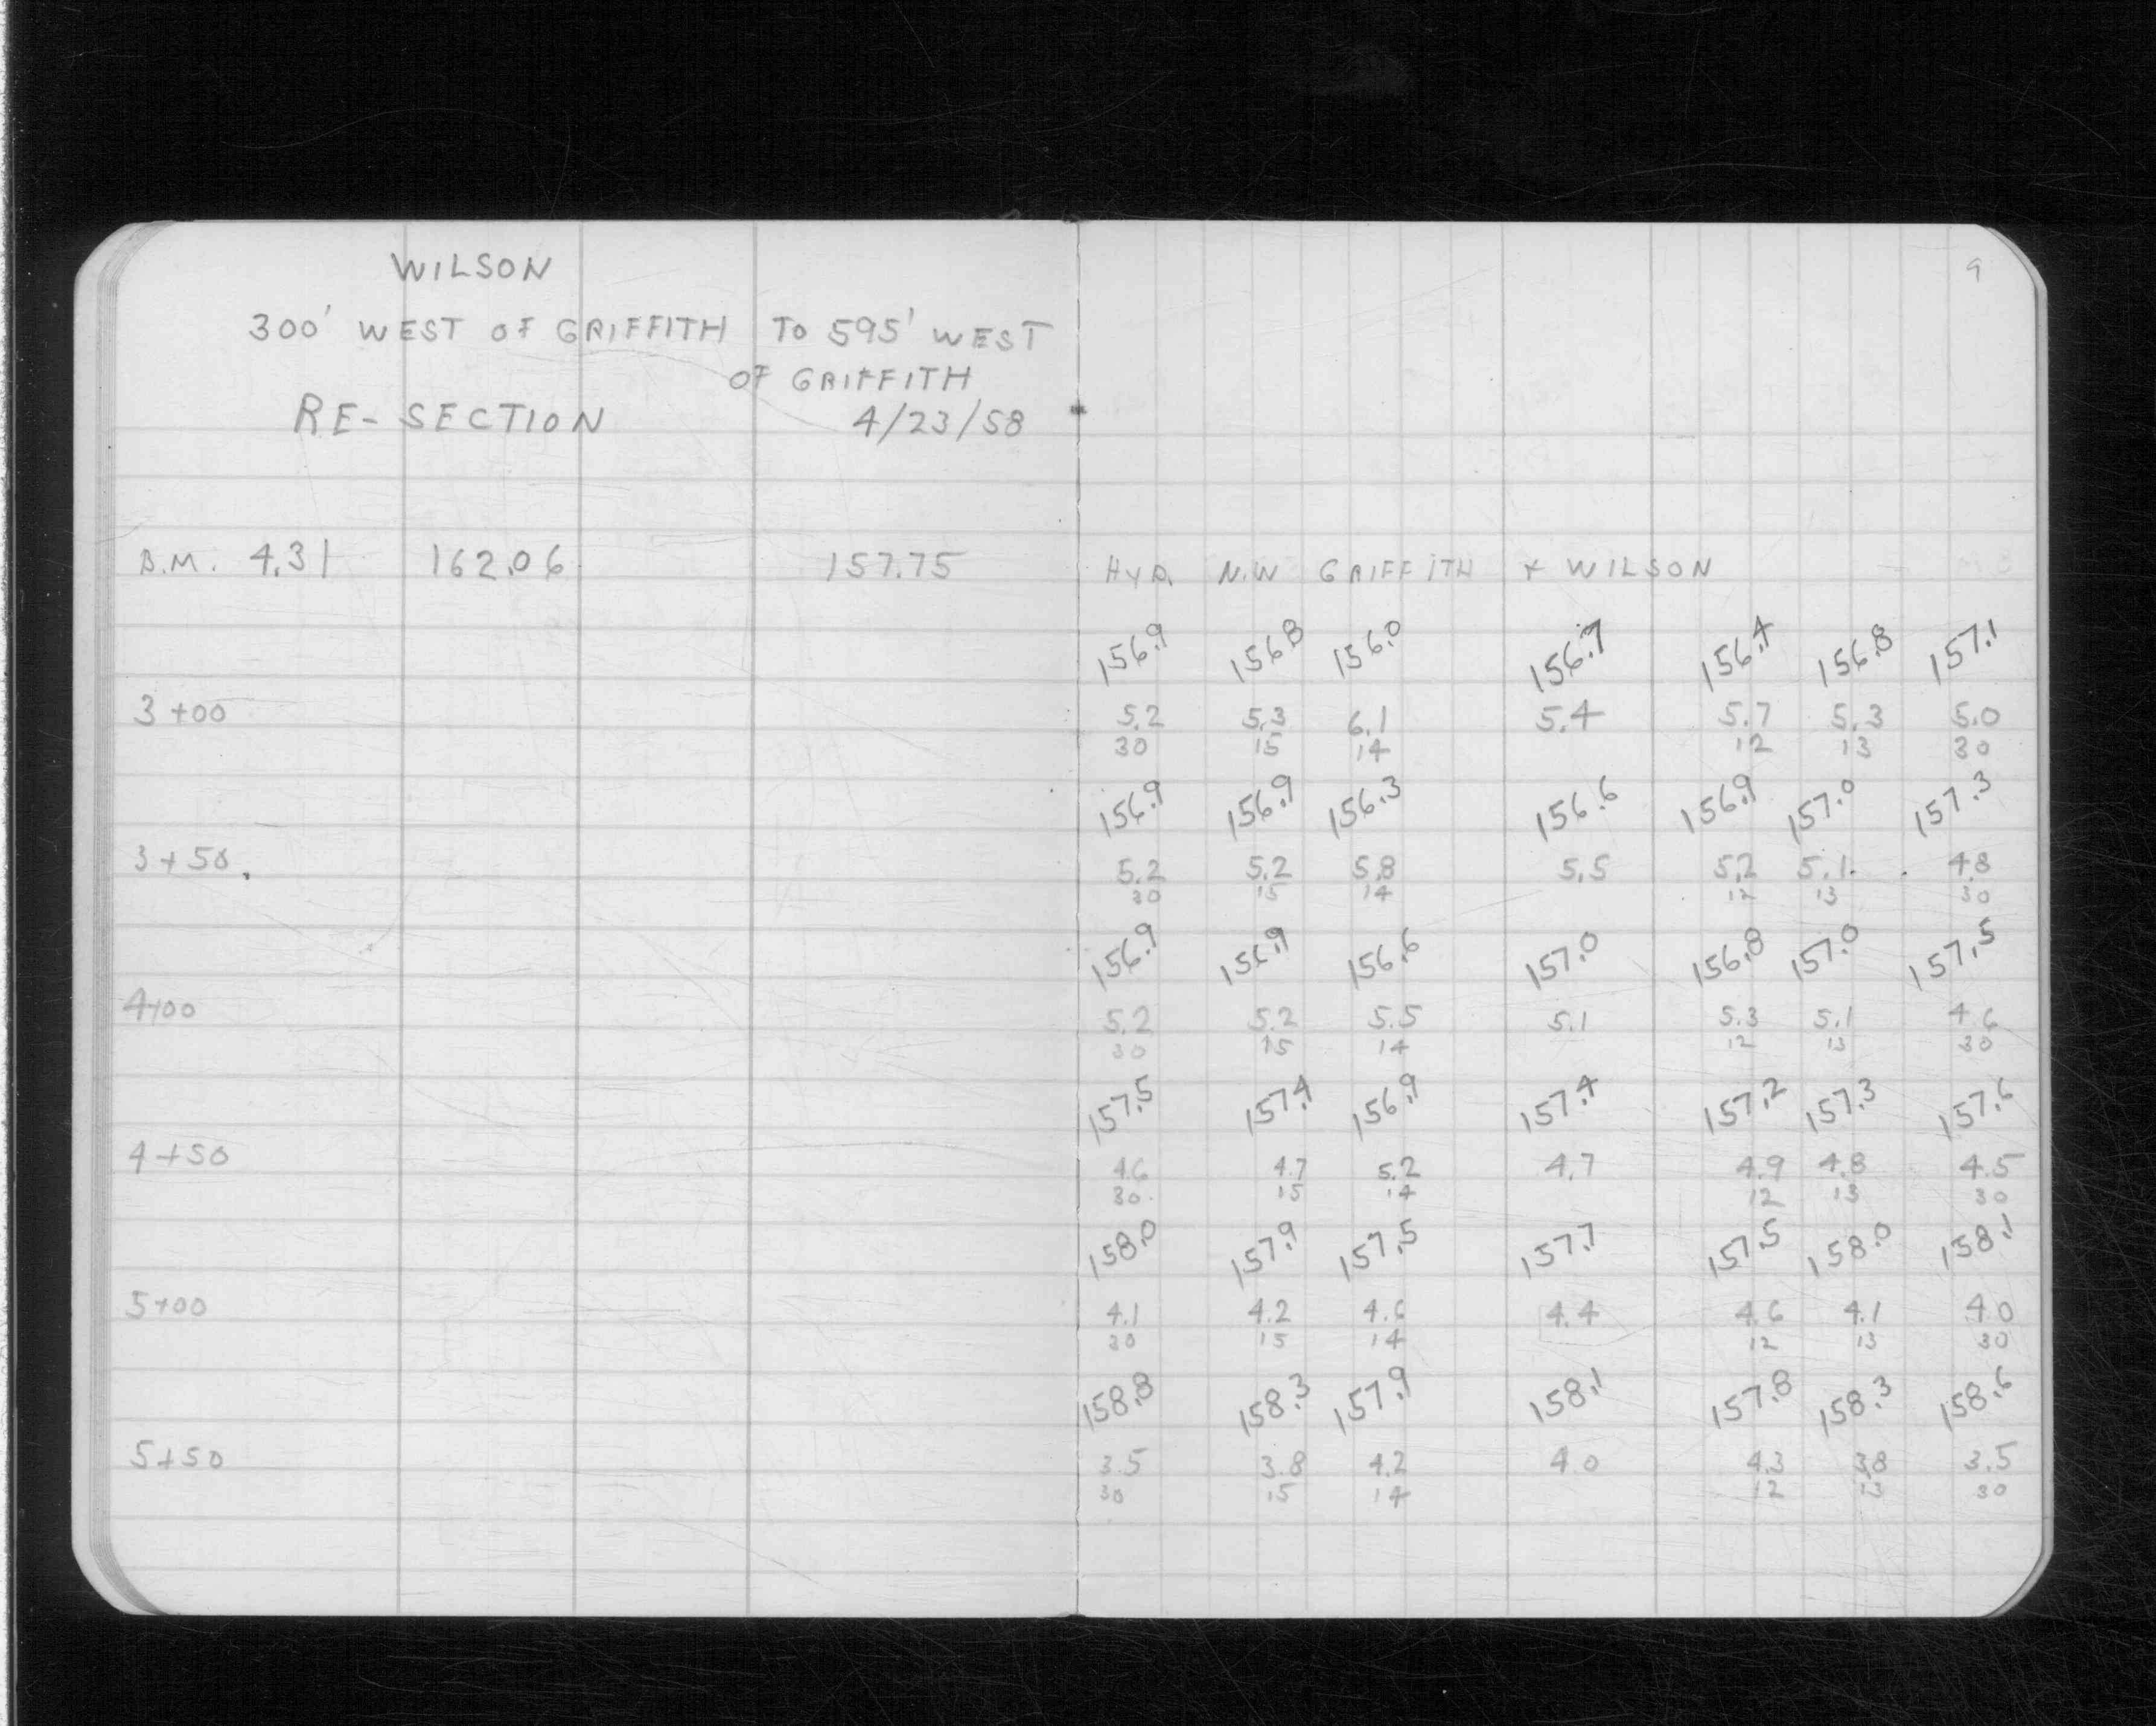 WILSON
300' WEST OF GRIFFITH TO 595' WEST
OF GRIFFITH
RE-SECTION 4/23/58
9
B.M. 4.31 162.06 157.75 HYD. N.W GRIFFITH & WILSON
156.9 156.8 156.0 156.7 156.4 156.8 157.1
3+00 5.2 5.3 6.1 5.4 5.7 5.3 5.0
30 15 14 12 13 30
156.9 156.9 156.3 156.6 156.9 157.0 157.3
3+50 5.2 5.2 5.8 5.5 5.2 5.1 4.8
30 15 14 12 13 30
156.9 156.9 156.6 157.0 156.8 157.0 157.5
4+00 5.2 5.2 5.5 5.1 5.3 5.1 4.6
30 15 14 12 13 30
157.5 157.4 156.9 157.4 157.2 157.3 157.6
4+50 4.6 4.7 5.2 4.7 4.9 4.8 4.5
30 15 14 12 13 30
158.0 157.9 157.5 157.7 157.5 158.0 158.1
5+00 4.1 4.2 4.6 4.4 4.6 4.1 4.0
30 15 14 12 13 30
158.8 158.3 157.9 158.1 157.8 158.3 158.6
5+50 3.5 3.8 4.2 4.0 4.3 3.8 3.5
30 15 14 12 13 30